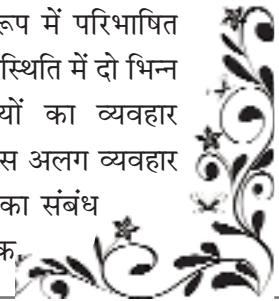 रूप में परिभाषित
स्थिति में दो भिन्न
यों का व्यवहार
स अलग व्यवहार
का संबंध
क